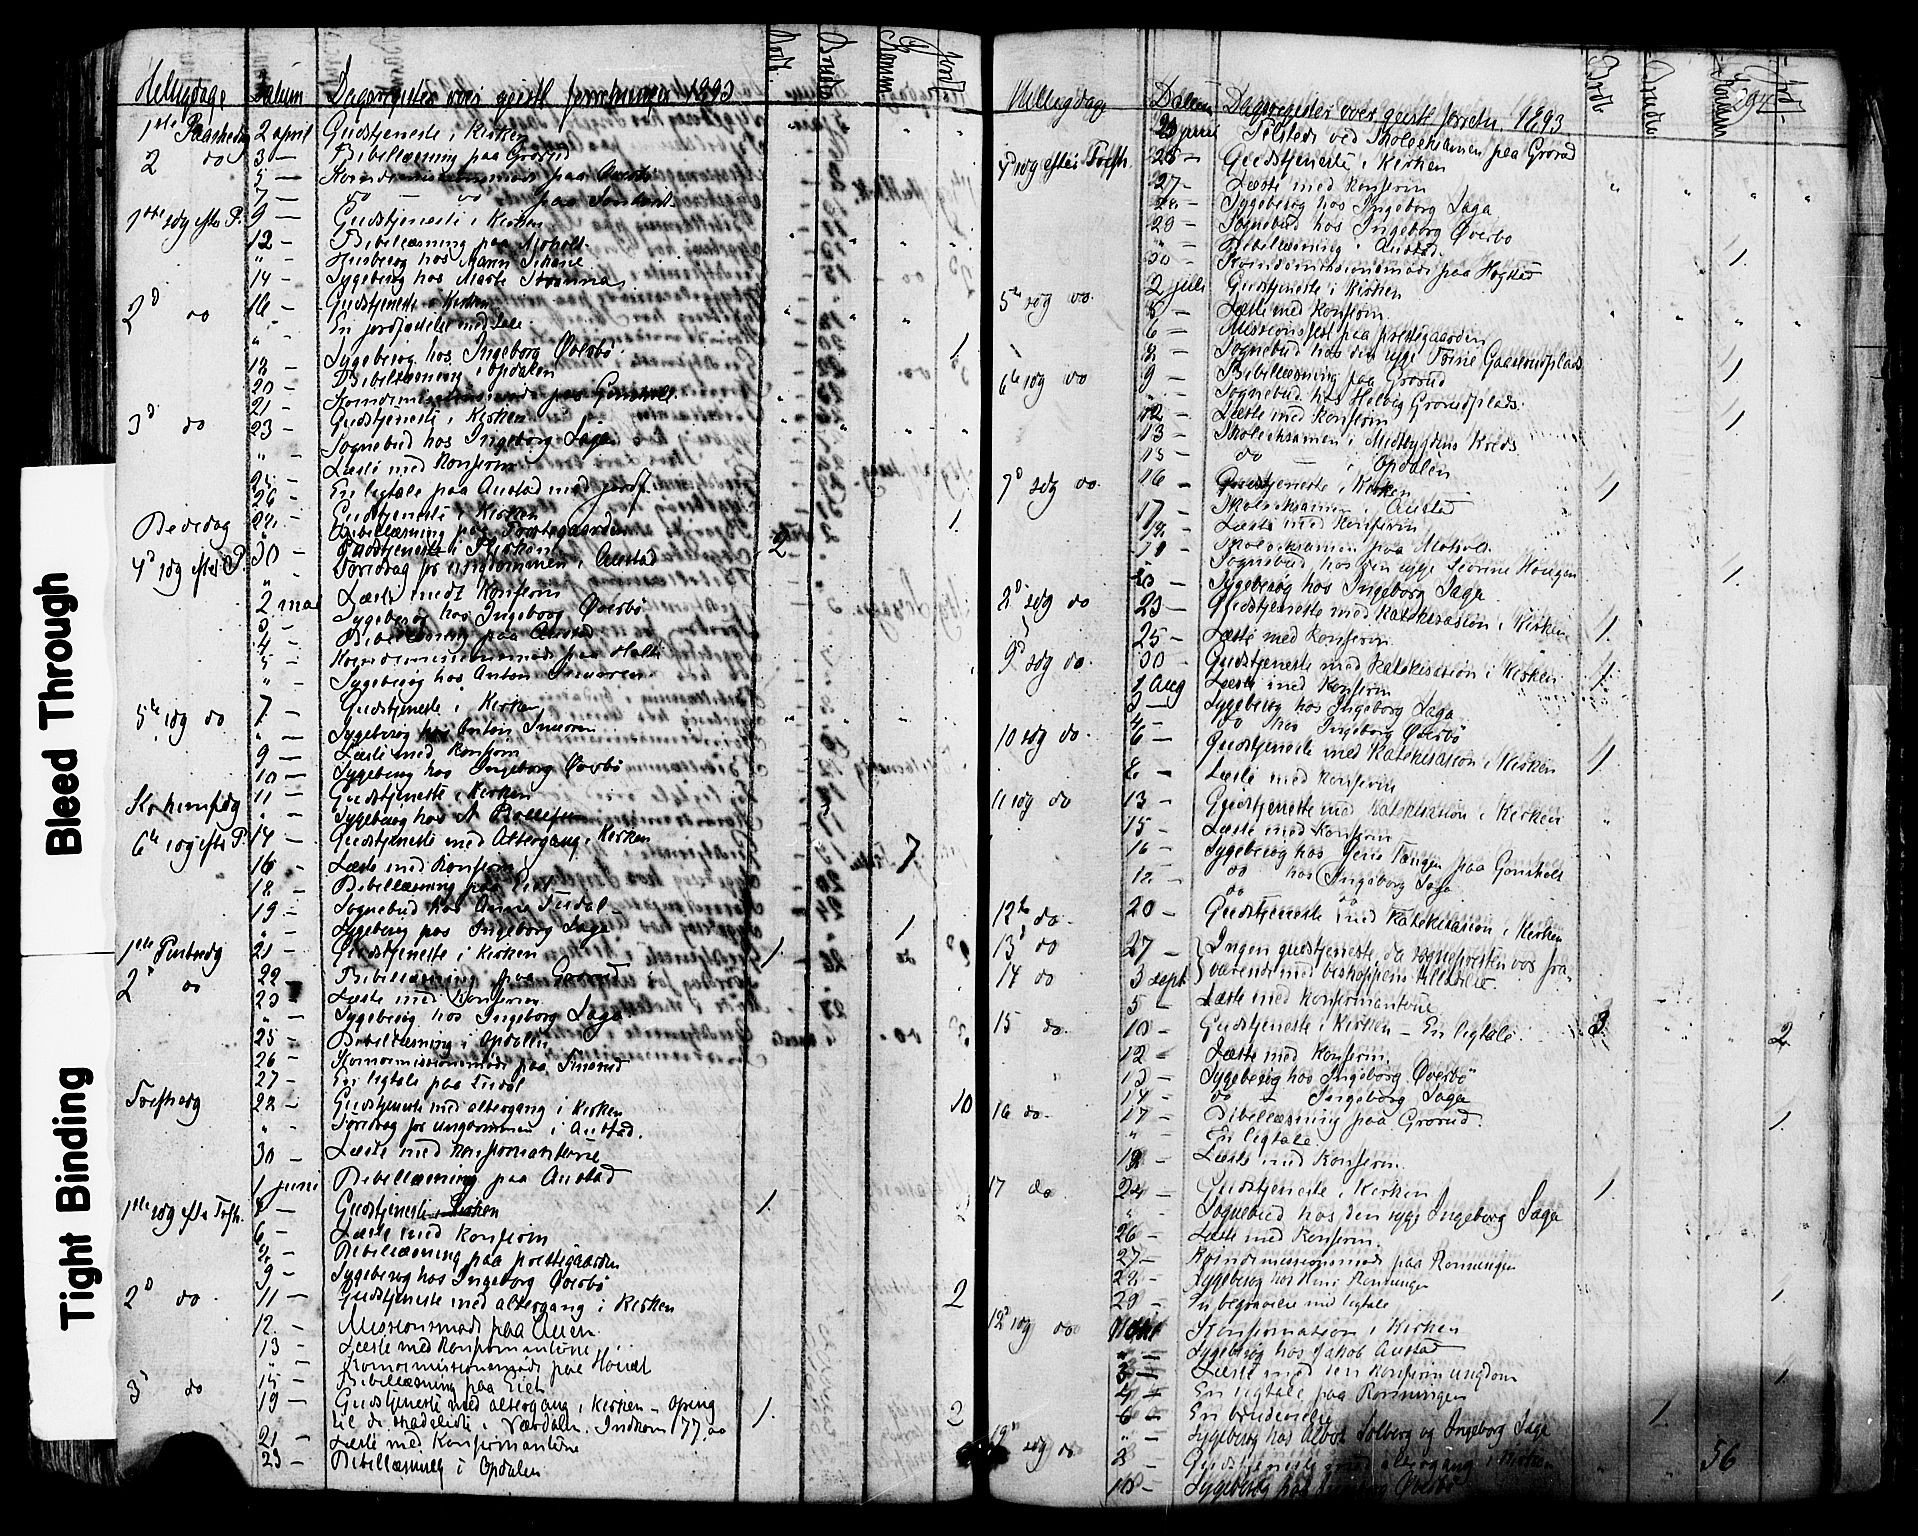 Bleed Through
Tight Binding
Helligdage Datum Dagsregister over geistl. forretninger 1893 Døbt. Brudev. Kommun. Jordf.
1ste Paaskedag 2 april Gudstjeneste i Kirken
2 do 3 — Bibellæsning paa Grorud
5 — Kvindemissionsmøde paa
7 — do — do paa
1ste søg efter P. 9 — Gudstjeneste i Kirken
12 — Bibellæsning paa Moholt
" Husbesøg hos Maren
14 — Sygebesøg hos Marte
2d do 16 — Gudstjeneste i Kirken
" En jordfæstelse med tale 1.
18 — Sygebesøg hos Ingeborg Øverbø
20 — Bibellæsning i Opdalen
21 — Kvindemissionsmøde paa Gomsholt
3d do 23 — Gudstjeneste i Kirken
" — Sognebud hos Ingeborg Saga
25 — Læste med Konfirm
26 — En ligtale paa Austad med jordf. 1.
Bededag Gudstjeneste i Kirken
" Bibellæsning paa Præstegaarden
4d søg efter P. 30 — Gudstjeneste i Kirken 2
" Foredrag for ungdommen i Austad
2 mai Læste med Konfirm
3 — Sygebesøg hos Ingeborg Øverbø
4 — Bibellæsning paa Austad
5 — Kvindemissionsmøde paa Holte
" Sygebesøg hos Anton
5te søg do 7 — Gudstjeneste i Kirken
" — Sygebesøg hos Anton
9 — Læste med Konfirm
10 — Sygebesøg hos Ingeborg Øverbø
Kr. himfdag 11 — Gudstjeneste i Kirken
" Sygebesøg hos A
6te søg efter P. 14 — Gudstjeneste med Altergang i Kirken 7
16 — Læste med Konfirm
18 — Bibellæsning paa Eiet
19 — Sognebud hos Anne 1
" — Sygebesøg hos Ingeborg Saga
1ste Pintsedg 21 — Gudstjeneste i Kirken 1.
2d do 22 — Bibellæsning paa Grorud
23 — Læste med Konfirm
" — Sygebesøg hos Ingeborg Saga
25 — Bibellæsning i Opdalen
26 — Kvindemissionsmøde paa
27 — En ligtale paa
Trefh.dg 28 — Gudstjeneste med altergang i Kirken 10
" — Foredrag for ungdommen i Austad.
30 — Læste med Konfirmanterne
1 juni Bibellæsning paa Austad
1ste søg efter Trefh. 4 — Gudstjeneste i Kirken 1.
6 — Læste med Konfirm
8 — Bibellæsning paa prestegaarden
9 — Sygebesøg hos Ingeborg Øverbø
2d do 11 — Gudstjeneste med altergang i Kirken 2
12 — Missionsmøde paa Auen
13 — Læste med Konfirmanterne
" Kvindemissionsmøde paa
15 — Bibellæsning paa Eiet
3d do 19 — Gudstjeneste med altergang i Kirken — Ofring 1. 2
til de skadelidte i Værdalen. Indkom 177.00
21 — Læste med Konfirmanterne
23 — Bibellæsning i Opdalen
294
Helligdage Datum Dagsregister over geistl. forretn. 1893 Døbte Brudev. Kommun. Jordf.
23 juni Tilstede ved Skoleeksamen paa Grorud
4d søg efter Trefh. 25 — Gudstjeneste i Kirken
27 — Læste med Konfirm
28 — Sygebesøg hos Ingeborg Saga
29 — Sognebud hos Ingeborg Øverbø 1.
" — Bibellæsning i Austad.
30 — Kvindemissionsmøde paa
5te søg do. 2 juli Gudstjeneste i Kirken
5 — Læste med Konfirm
6 — Missionsfest paa prestegaarden
8 — Sognebud hos den syge 1
6te søg do 9 — Bibellæsning paa Grorud
" Sognebud hos Helvig Grorudplads. 1
12 — Læste med Konfirm
13 — Skoleeksamen i Midtbygdens Kreds
15 — do — i Opdalen
7d søg do. 16 — Gudstjeneste i Kirken 1
17 — Skoleeksamen i Austad
18 — Læste med Konfirm
19 — Skoleeksamen paa Moholt
" Sognebud hos den syge Severine Haugen 1.
20 — Sygebesøg hos Ingeborg Saga
8d søg do 23 — Gudstjeneste med Katekisasion i Kirken 1.
25 — Læste med Konfirm
9d søg do. 30 — Gudstjeneste med Katekisasion i Kirken 1
1 Aug Læste med Konfirm
3 — Sygebesøg hos Ingeborg Saga
4 — do hos Ingeborg Øverbø
10 søg do. 6 — Gudstjeneste med Katekisasion i Kirken 1
8 — Læste med Konfirm
11 søg do 13 — Gudstjeneste med Katekisasion i Kirken
15 — Læste med Konfirm
16 — Sygebesøg hos Jens Tangen paa Gomsholt
18 — do hos Ingeborg Saga
12te do. 20 — Gudstjeneste med Katekisasion i Kirken
13d do 27 — Ingen gudstjeneste, da sognepresten var fra-
14 do 3 sept værende med beskoppens tilladelse
5 — Læste med Konfirmanterne
15 do. 10 — Gudstjeneste i Kirken — En ligtale 3 2
12 — Læste med Konfirm
13 — Sygebesøg hos Ingeborg Øverbø
14 — do — Ingeborg Saga
16 do. 17 — Bibellæsning paa Grorud. 1.
" — En ligtale
19 — Læste med Konfirm.
17 do 24 — Gudstjeneste i Kirken 1.
" Sognebud hos den syge Ingeborg Saga
26 — Læste med Konfirm.
27 — Kvindemissionsmøde paa Rønningen
28 — Sygebesøg hos Rønningen
29 — En begravelse med ligtale 1.
18d søg do Konfirmation i Kirken
" — Sygebesøg hos Jakob Austad
3 — Læste med den konfirm ungdom
4 — En ligtale paa Rønningen 1.
6 — En brudevielse 1.
" — Sygebesøg hos Solberg og Ingeborg Saga
19d søg do 8 — Gudstjeneste med altergang i Kirken 56
10 — Sygebesøg hos Ingeborg Øverbø